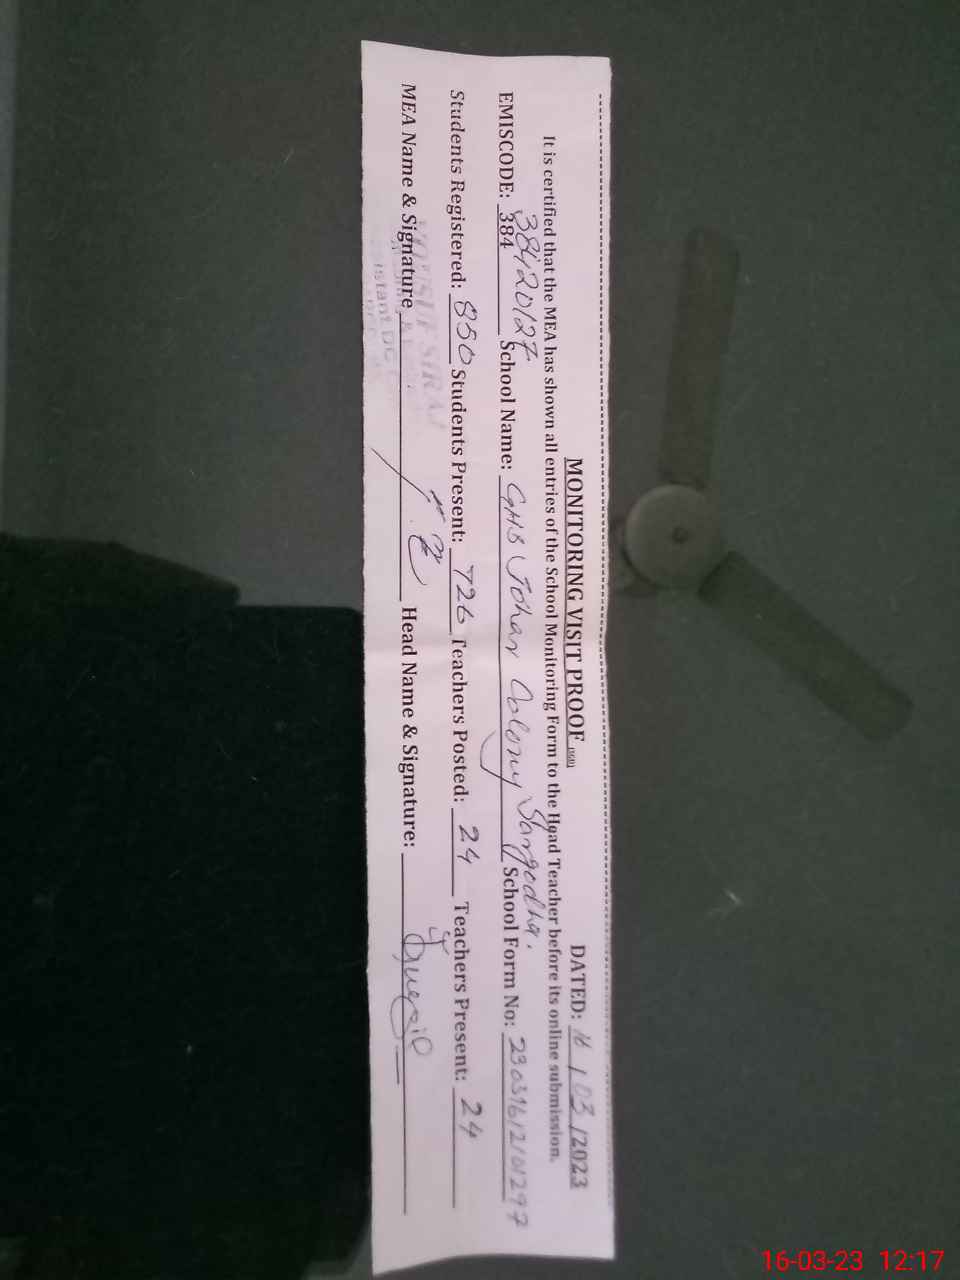 MONITORING VISIT PROOF DATED: 16 / 03 /2023
It is certified that the MEA has shown all entries of the School Monitoring Form to the Head Teacher before its online submission.
EMISCODE: 384 38420127 School Name: GHS Johar Colony Sargodha. School Form No:
Students Registered: 850 Students Present: 726 Teachers Posted: 24 Teachers Present: 24
MEA Name & Signature Head Name & Signature:
16-03-23 12:17